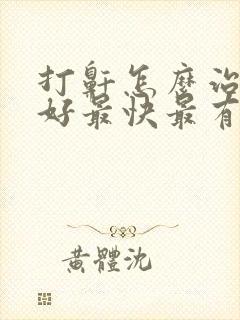 打鼾怎麼治
好最快最有
黃體沈